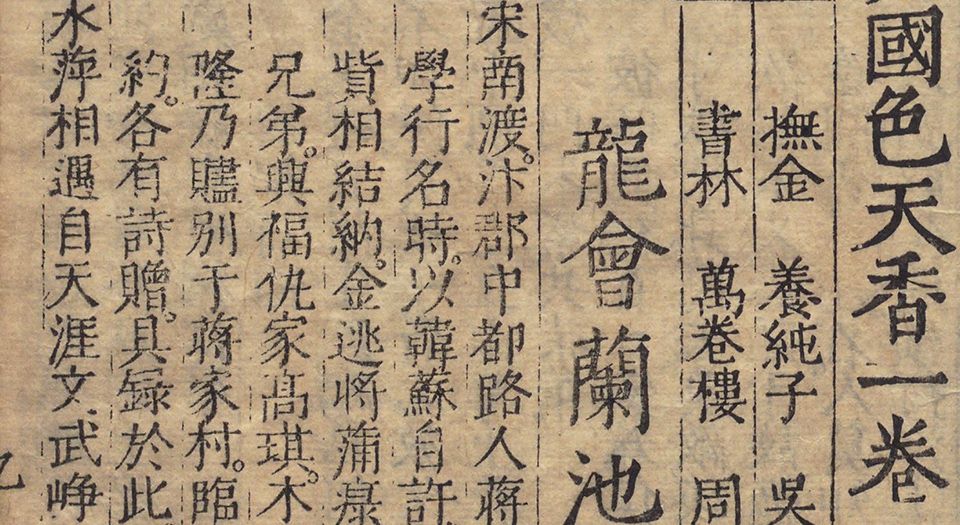 國色天香一卷
撫金 養純子 吳
書林 萬卷樓 周
龍會蘭池
宋南渡。汴郡中都路人蔣
學行名時。以韓蘇自許
貲相結納。金逃將蒲
兄弟。興福仇家高琪。木
隆乃贐別于蔣家村。臨
約。各有詩贈。具録於此
水萍相遇自天涯文武崢